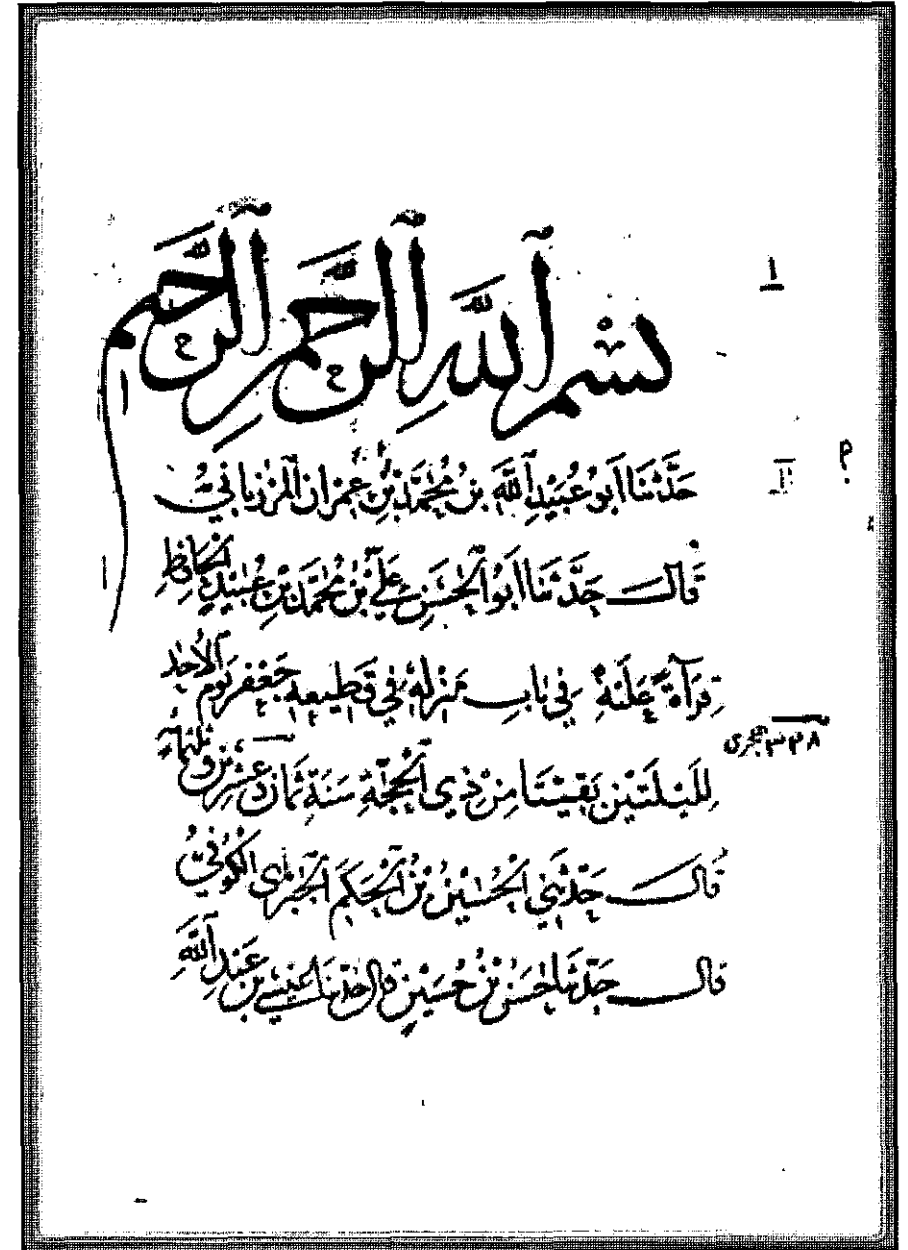 ١
بسم الله الرحمن الرحيم
حَدَّثَنَا أَبُو عُبَيْدِ اللَّهِ بنُ مُحَمَّدِ بْنِ عِمْرَانَ المَرْزُبَانِيُّ
قَالَ حَدَّثَنَا أَبُو الْحَسَنِ عَلِيُّ بْنُ مُحَمَّدِ بْنِ عُبَيْدٍ الْحَافِظِ
قِرَآءَةً عَلَيْهِ فِي بَابِ مَنْزِلِهِ فِي قَطِيعةِ جَعْفَرٍ يَوْم الأحد
لِلَيْلَتَيْنِ بَقِيَتَا مِنْ ذِي الْحِجَّةِ سَنَةَ ثَمَان وَعِشْرِينَ وثلثمائة
٣٢٨ هجري
قَالَ حَدَّثَنِي الْحُسَيْنُ بْنُ الْحَكَمِ الْحِبَرِي الْكُوفِيُّ
قال حَدَّثَنَا حَسَنُ بْنُ حُسَيْنٍ قال حَدَّثَنَا عِيسَى بْنُ عَبْدِ اللَّهِ